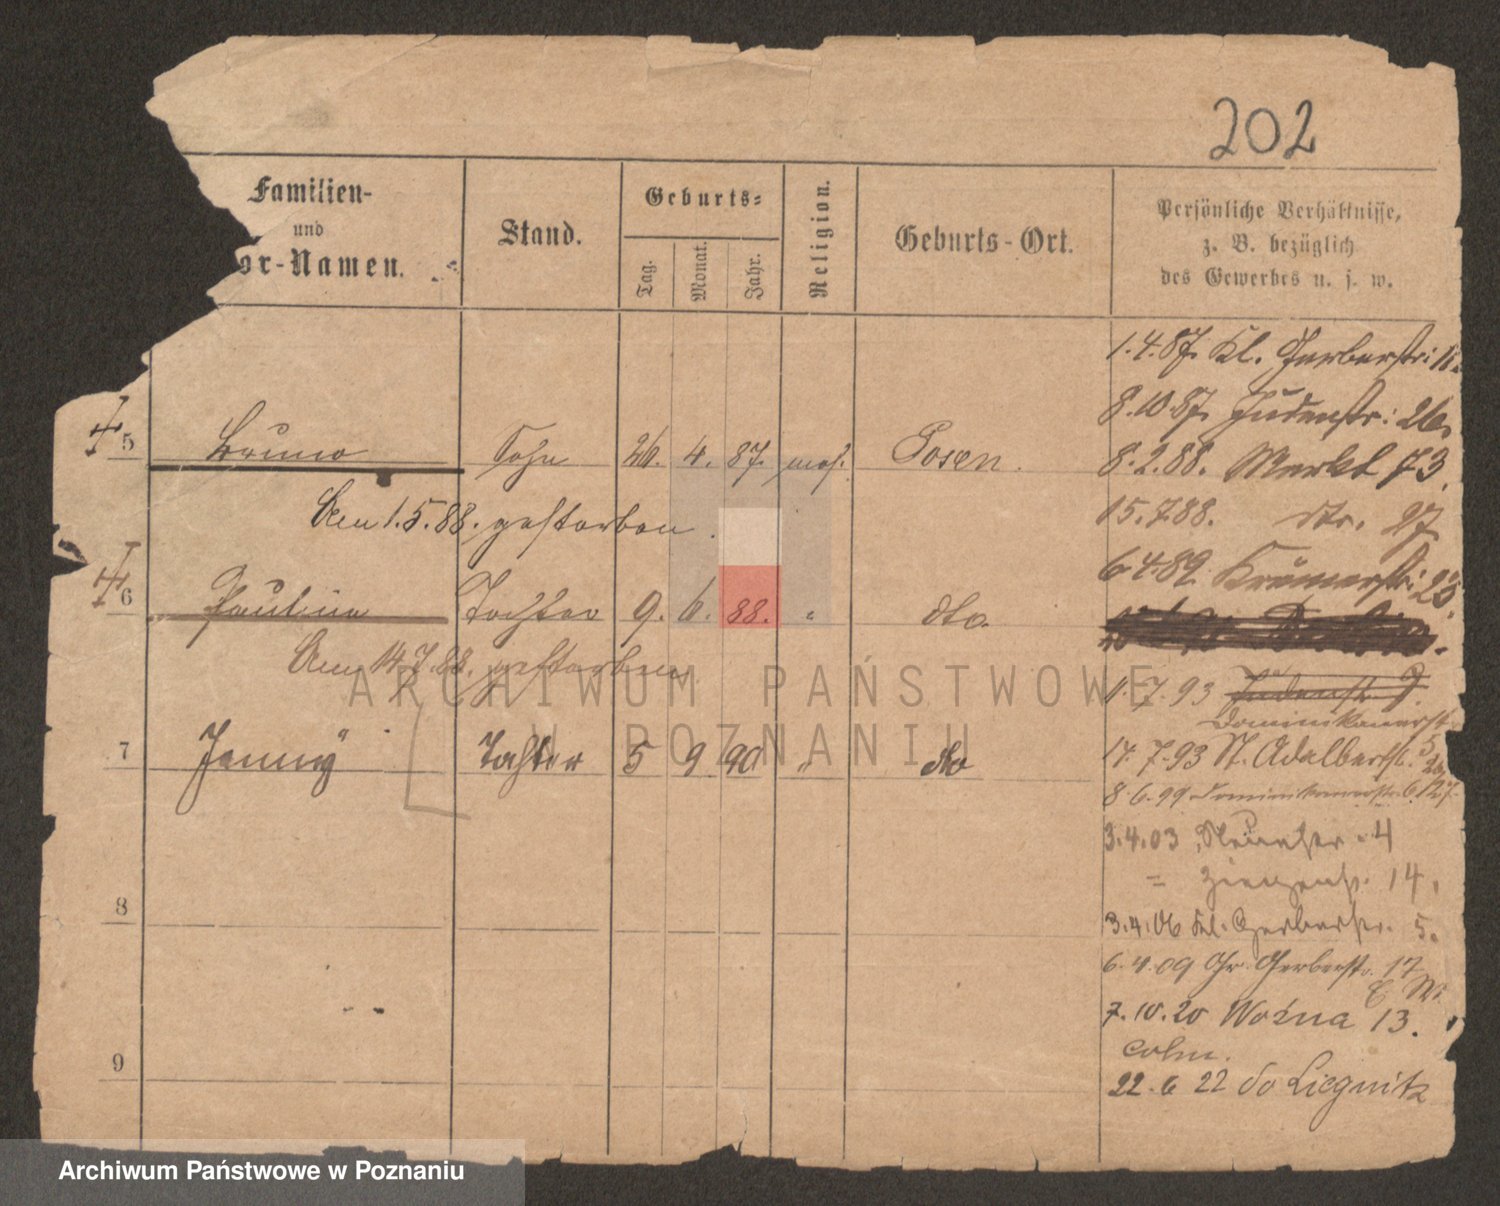 202
Familien-
und
or-Namen.
Stand.
Geburts-
Tag.
Monat.
Jahr.
Religion.
Geburts-Ort.
Persönliche Verhältnisse,
z. B. bezüglich
des Gewerbes u. s. w.
1.4.87. Kl. Gerberstr:
8.10.87. Judenstr: 26.
5 Bruno Sohn 26. 4. 87. mos. Posen.
8.2.88. Markt 73.
Am 1.5.88. gestorben.
15.7.88. dto. 27
6.4.89. Krämerstr: 23.
6 Pauline Tochter 9. 6. 88. " dto.
Am 14.7.88. gestorben
1.7.93 Judenstr
Dominikanerst
7 Jenny Tochter 5 9 90 " dto
17.7.93 St. Adalbertst.
8.6.99 Dominikanerstr.
3.4.03 4
= Ziegenst. 14.
8
3.4.06 Kl. Gerberstr. 5.
6.4.09 Gr. Gerberstr. 17
7.10.20 Woźna 13.
9
22.6 22 do Liegnitz
ARCHIWUM PAŃSTWOWE
W POZNANIU
Archiwum Państwowe w Poznaniu